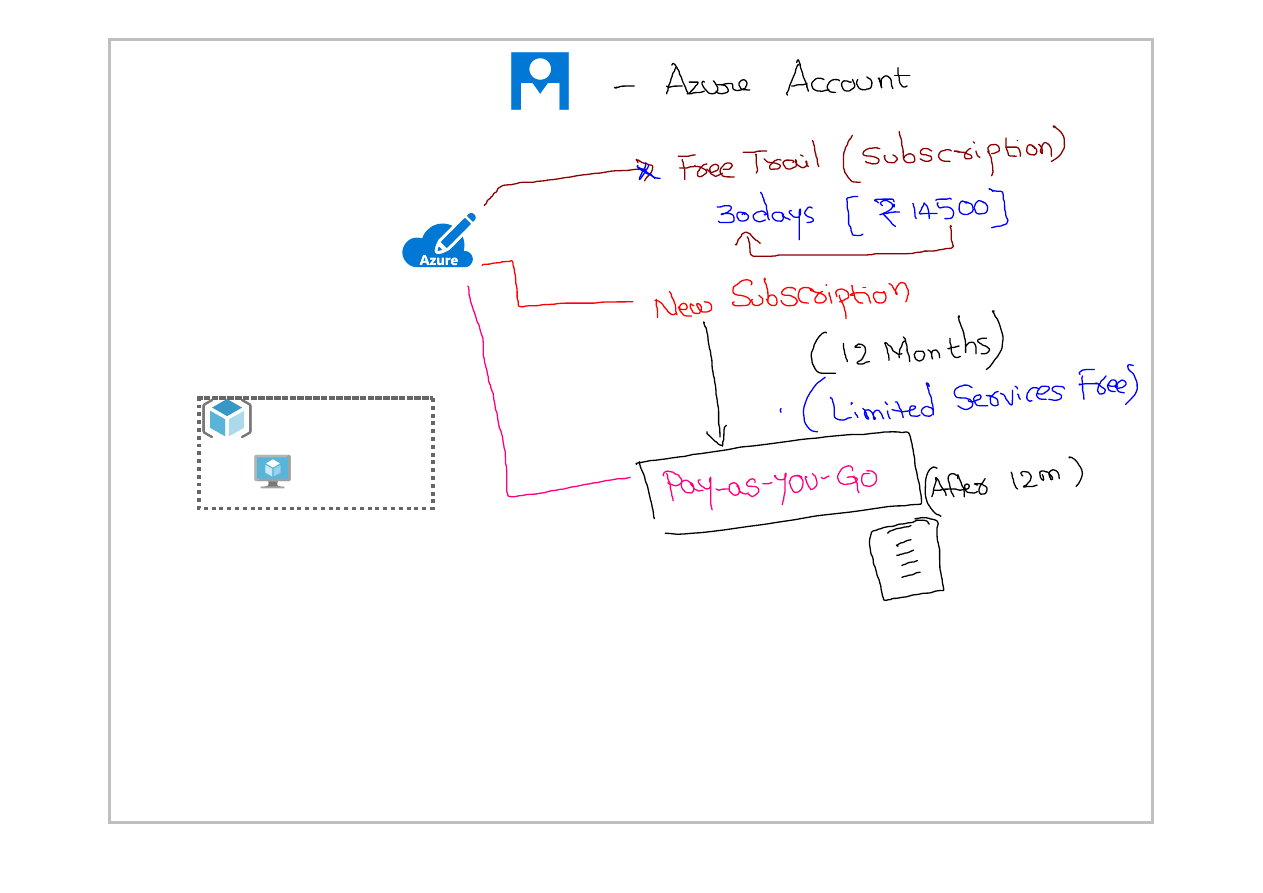 - Azure Account
Free Trail (Subscription)
30days [₹ 14500]
Azure
New Subscription
(12 Months)
(Limited Services Free)
Pay-as-you-Go (After 12m)